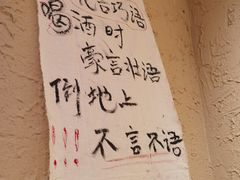 言巧语
喝酒时
豪言壮语
倒地上
!!! 不言不语